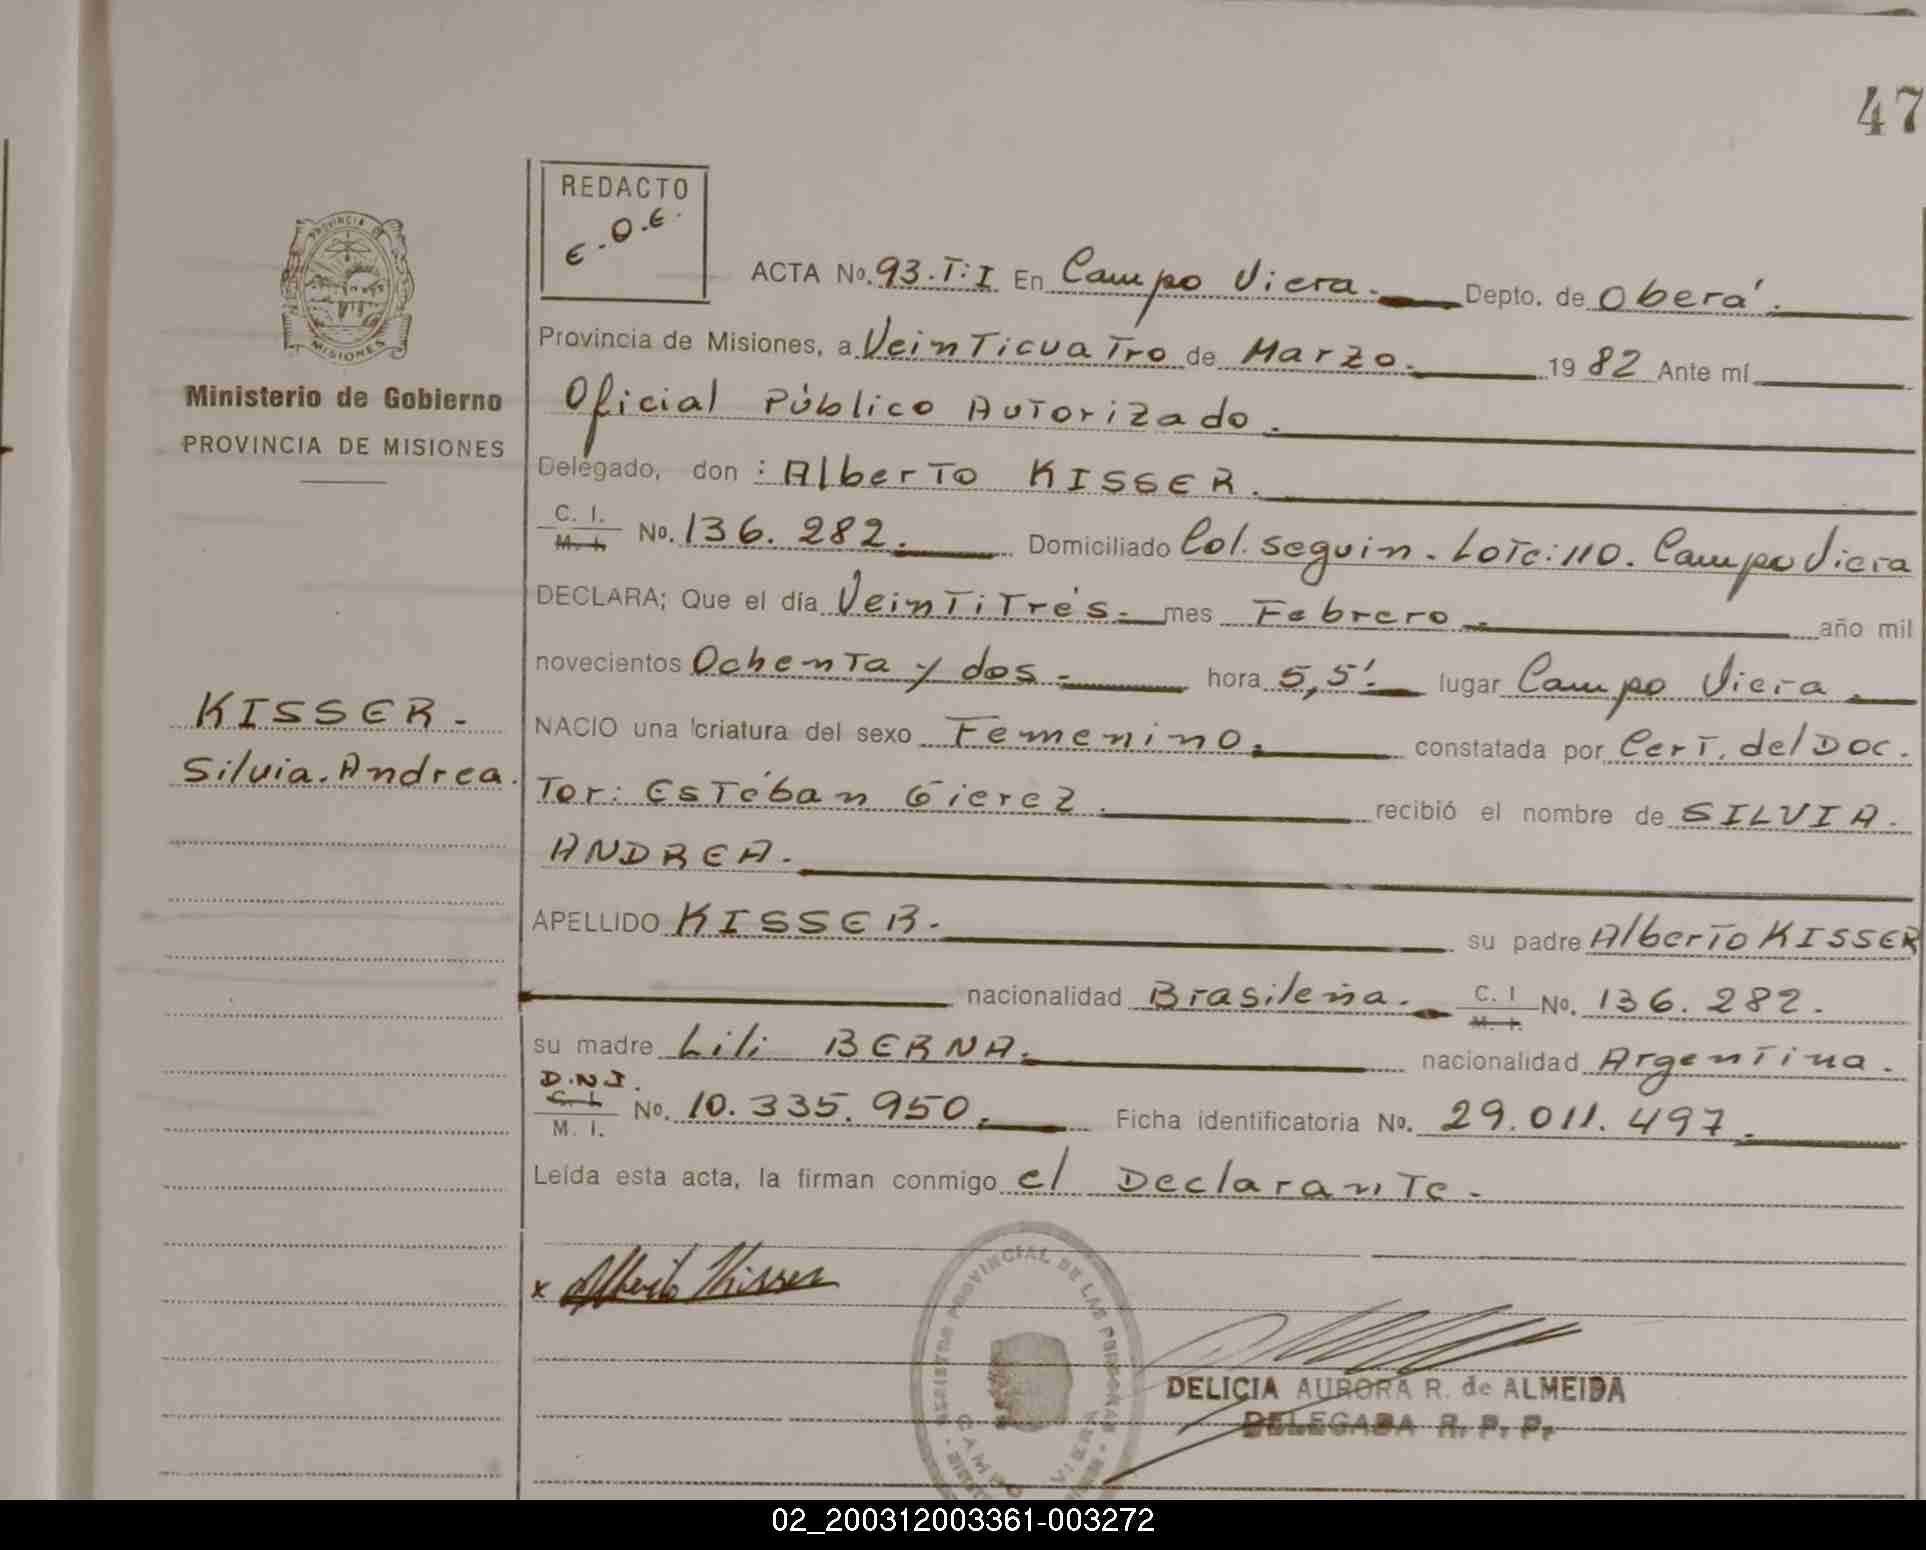 47
REDACTO
E.O.E.
PROVINCIA DE
MISIONES
Ministerio de Gobierno
PROVINCIA DE MISIONES
ACTA No. 93.T:I En Campo Viera. Depto. de Oberá.
Provincia de Misiones, a Veinticuatro de Marzo. 1982 Ante mí
Oficial Público Autorizado.
Delegado, don : Alberto KISSER.
C. I.
M. I. No. 136.282. Domiciliado Col. Seguin. Lote: 110. Campo Viera
DECLARA; Que el día Veintitrés. mes Febrero. año mil
novecientos Ochenta y dos. hora 5,5'. lugar Campo Viera.
KISSER.
Silvia. Andrea.
NACIO una criatura del sexo Femenino. constatada por Cert. del Doc.
Tor: Estéban Gierez. recibió el nombre de SILVIA.
ANDREA.
APELLIDO KISSER. su padre Alberto KISSER
nacionalidad Brasileña. C. I
M. I. No. 136.282.
su madre Lili BERNA. nacionalidad Argentina.
D.N.I.
C. I.
M. I. No. 10.335.950. Ficha identificatoria No. 29.011.497.
Leída esta acta, la firman conmigo el Declarante.
x Alberto Kisser
REGISTRO PROVINCIAL DE LAS PERSONAS
CAMPO VIERA
DELICIA AURORA R. de ALMEIDA
DELEGADA R. P. P.
02_200312003361-003272